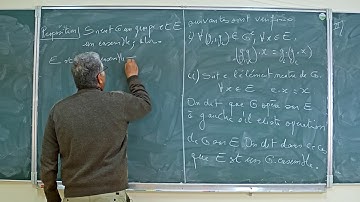 Proposition: Soient G un groupe et E
un ensemble, alors
E
suivantes sont vérifiées
i) ∀(g₁,g₂) ∈ G², ∀x ∈ E
(g₁g₂)·x = g₁·(g₂·x)
ii) e l'élément neutre de G.
∀x ∈ E e·x = x
On dit que G opère sur E
à gauche
de G sur E. On dit dans ce cas
que E est un G-ensemble.